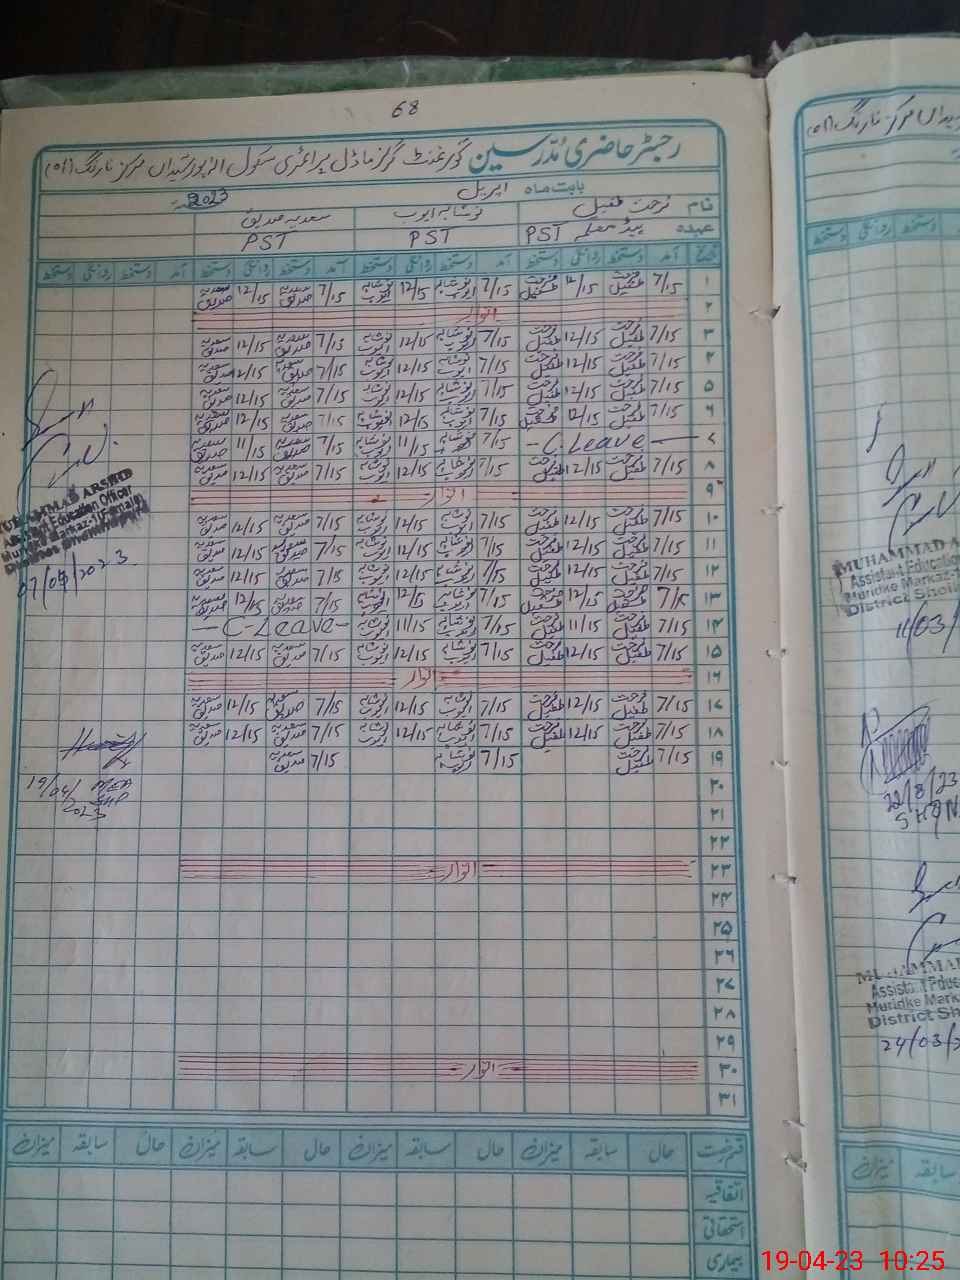 68
رجسٹر حاضری مدرسین گورنمنٹ گرلز ماڈل پرائمری سکول مرکز نارنگ
بابت ماہ اپریل 2023
نام فرحت طفیل نوشابہ ایوب سعدیہ صدیق
عہدہ ہیڈ معلمہ PST PST PST
تاریخ آمد دستخط روانگی دستخط آمد دستخط روانگی دستخط آمد دستخط روانگی دستخط آمد دستخط روانگی دستخط
۱ 7/15 فرحت طفیل 12/15 فرحت طفیل 7/15 نوشابہ ایوب 12/15 نوشابہ ایوب 7/15 سعدیہ صدیق 12/15 سعدیہ صدیق
۲ اتوار
۳ 7/15 فرحت طفیل 12/15 فرحت طفیل 7/15 نوشابہ ایوب 12/15 نوشابہ ایوب 7/15 سعدیہ صدیق 12/15 سعدیہ صدیق
۴ 7/15 فرحت طفیل 12/15 فرحت طفیل 7/15 نوشابہ ایوب 12/15 نوشابہ ایوب 7/15 سعدیہ صدیق 12/15 سعدیہ صدیق
۵ 7/15 فرحت طفیل 12/15 فرحت طفیل 7/15 نوشابہ ایوب 12/15 نوشابہ ایوب 7/15 سعدیہ صدیق 12/15 سعدیہ صدیق
۶ 7/15 فرحت طفیل 12/15 فرحت طفیل 7/15 نوشابہ ایوب 12/15 نوشابہ ایوب 7/15 سعدیہ صدیق 12/15 سعدیہ صدیق
۷ - C. Leave - 7/15 نوشابہ ایوب 11/15 نوشابہ ایوب 7/15 سعدیہ صدیق 11/15 سعدیہ صدیق
۸ 7/15 فرحت طفیل 12/15 فرحت طفیل 7/15 نوشابہ ایوب 12/15 نوشابہ ایوب 7/15 سعدیہ صدیق 12/15 سعدیہ صدیق
۹ اتوار
۱۰ 7/15 فرحت طفیل 12/15 فرحت طفیل 7/15 نوشابہ ایوب 12/15 نوشابہ ایوب 7/15 سعدیہ صدیق 12/15 سعدیہ صدیق
۱۱ 7/15 فرحت طفیل 12/15 فرحت طفیل 7/15 نوشابہ ایوب 12/15 نوشابہ ایوب 7/15 سعدیہ صدیق 12/15 سعدیہ صدیق
۱۲ 7/15 فرحت طفیل 12/15 فرحت طفیل 7/15 نوشابہ ایوب 12/15 نوشابہ ایوب 7/15 سعدیہ صدیق 12/15 سعدیہ صدیق
۱۳ 7/15 فرحت طفیل 12/15 فرحت طفیل 7/15 نوشابہ ایوب 12/15 نوشابہ ایوب 7/15 سعدیہ صدیق 12/15 سعدیہ صدیق
۱۴ 7/15 فرحت طفیل 11/15 فرحت طفیل 7/15 نوشابہ ایوب 11/15 نوشابہ ایوب - C-Leave -
۱۵ 7/15 فرحت طفیل 12/15 فرحت طفیل 7/15 نوشابہ ایوب 12/15 نوشابہ ایوب 7/15 سعدیہ صدیق 12/15 سعدیہ صدیق
۱۶ اتوار
۱۷ 7/15 فرحت طفیل 12/15 فرحت طفیل 7/15 نوشابہ ایوب 12/15 نوشابہ ایوب 7/15 سعدیہ صدیق 12/15 سعدیہ صدیق
۱۸ 7/15 فرحت طفیل 12/15 فرحت طفیل 7/15 نوشابہ ایوب 12/15 نوشابہ ایوب 7/15 سعدیہ صدیق 12/15 سعدیہ صدیق
۱۹ 7/15 فرحت طفیل 7/15 نوشابہ ایوب 7/15 سعدیہ صدیق
۲۰
۲۱
۲۲
۲۳ اتوار
۲۴
۲۵
۲۶
۲۷
۲۸
۲۹
۳۰ اتوار
۳۱
قسم رخصت حال سابقہ میزان حال سابقہ میزان حال سابقہ میزان حال سابقہ میزان
اتفاقیہ
استحقاقی
بیماری
MUHAMMAD ARSHD
Assistant Education Officer
Muridke Markaz-1 (Female)
District Sheikhupura
07/04/2023
19/04/2023
MEA
SKP
MUHAMMAD A
Assistant Education
Muridke Markaz-1
District Shei
11/03/
22/8/23
MUHAMMA
Assistant Educ
Muridke Mark
District Sh
24/03/2
میزان سابقہ
19-04-23 10:25